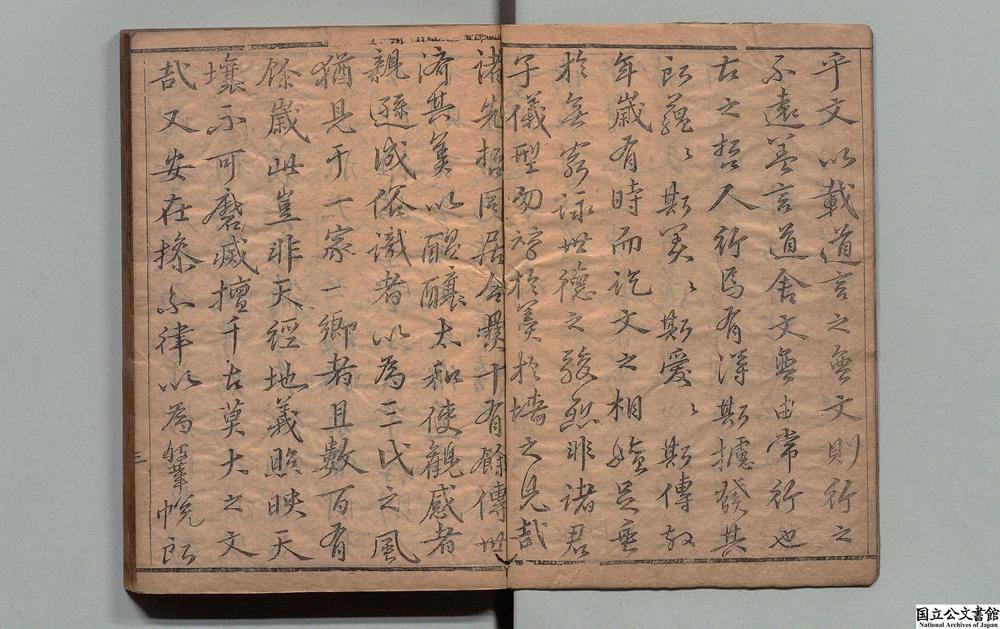 乎文以載道言之無文則行之
不遠盖言道舍文無由常行也
古之哲人行焉有得斯攄發其
所蘊〻斯美〻斯愛〻斯傳故
年歲有時而訖文之相繩足垂
於無窮詠世德之駿烈非諸君
子儀型勿諼於羹於墻之見哉
諸先哲同居合爨十有餘傳世
濟其美以醖釀太和使觀感者
親遜成俗識者以為三代之風
猶見于一家一鄉者且數百有
餘歲此豈非天經地義照映天
壤不可磨滅擅千古莫大之文
哉又安在操不律以為鞶帨所
三
国立公文書館
National Archives of Japan